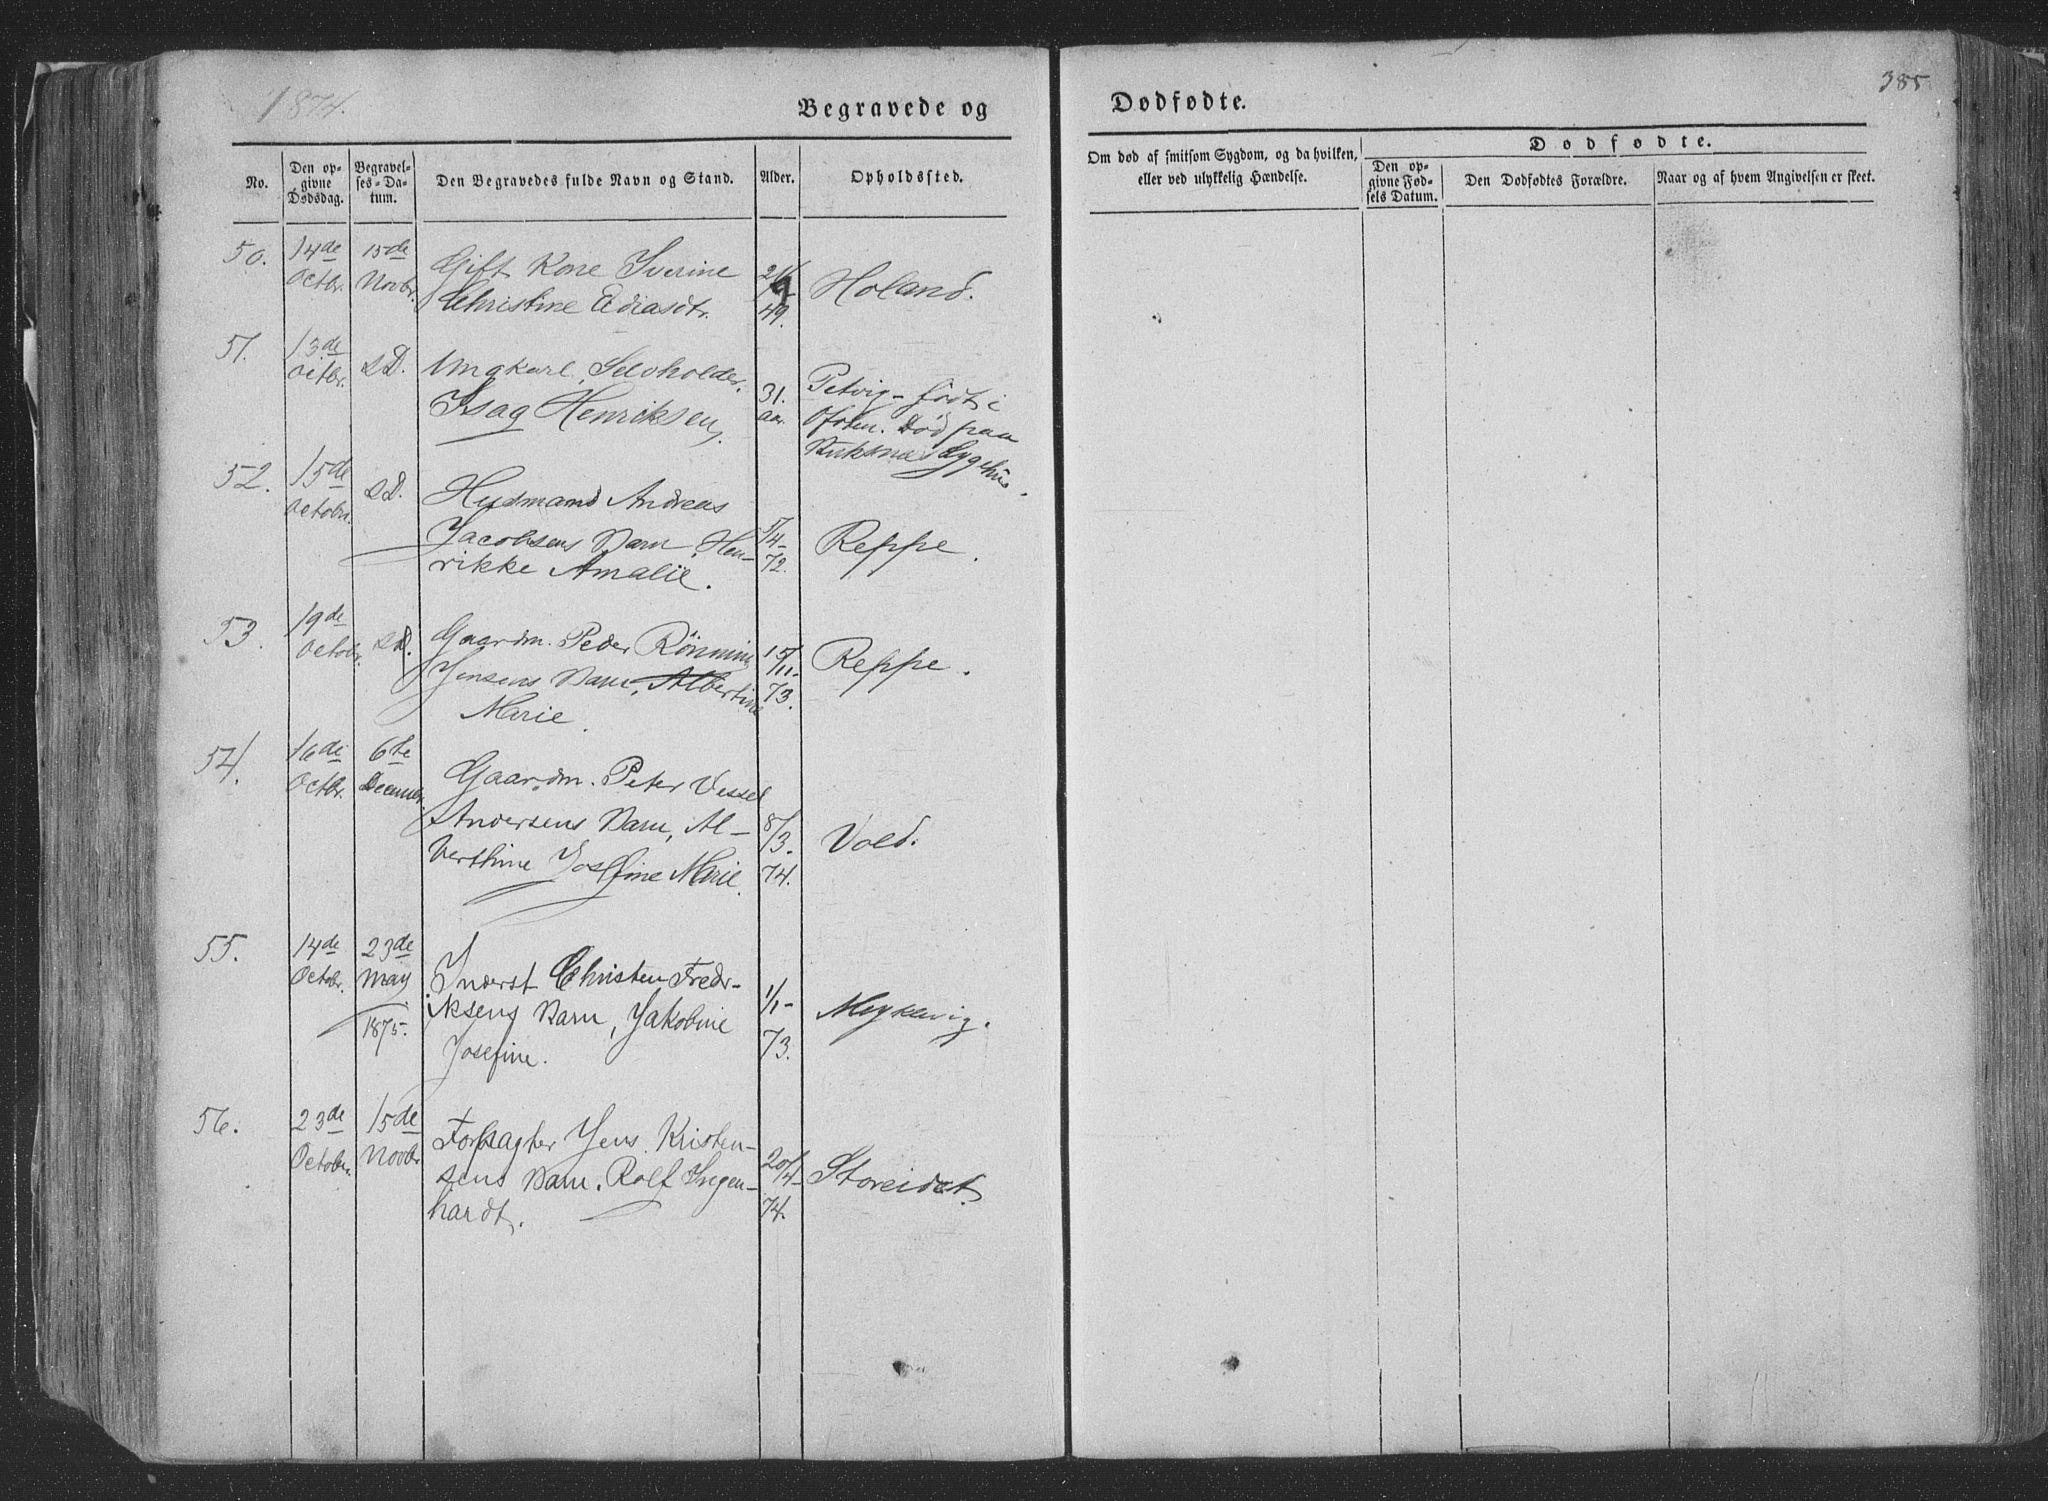 1874.
Begravede og
Dødfødte.
385
No.
Den opgivne Dødsdag.
Begravelses-Datum.
Den Begravedes fulde Navn og Stand.
Alder.
Opholdssted.
Om død af smitsom Sygdom, og da hvilken,
eller ved ulykkelig Hændelse.
Dødfødte.
Den opgivne Fødsels Datum.
Den Dødfødtes Forældre.
Naar og af hvem Angivelsen er skeet.
50. 14de Octbr. 15de Novbr.
Gift Kone Sverine
Christine Ediasdtr.
49.
Holand.
51. 13de Octbr. s.D.
Ungkarl, Selvholder,
Isag Henriksen,
31. aar.
Petvig - født i
Ofoten. Død paa
Sygehus.
52. 15de Octobr. s.D.
Husmand Andreas
Jacobsens Barn, Hen-
rikke Amalie.
5/4-
72.
Reppe.
53. 19de Octobr. s.D.
Gaardm. Peder Rönning
Jensens Barn, Albertine
Marie.
15/11-
73.
Reppe.
54. 16de Octbr. 6te Decembr.
Gaardm. Peter Vessel
Andersens Barn, Al-
berthine Josefine Marie.
8/3.
74.
Vold.
55. 14de Octobr. 23de May 1875.
Inderst Christen Fredr-
iksens Barn, Jakobine
Josefine.
1/1-
73.
56. 23de Octobr. 15de Novbr
Forpagter Jens Kristen-
sens Barn, Rolf Ingen-
hardt.
20/4-
74.
Storeidet.